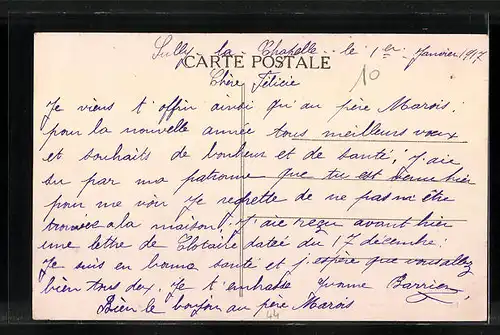 Sully-la-Chapelle le 1er Janvier 1917
CARTE POSTALE
10
Chère Félicie
Je viens t'offrir ainsi qu'au père Marois :
pour la nouvelle année tous meilleurs vœux
et souhaits de bonheur et de santé, J'aie
su par ma patronne que tu est venue hier
pour me voir Je regrette de ne pas m'être
trouvée a la maison. J'aie reçu avant hier
une lettre de Clotaire datée du 17 décembre.
Je suis en bonne santé et j'espère que vous allez
bien tous deux. Je t'embrasse Yvonne Barrier
Bien le bonjour au père Marois
44